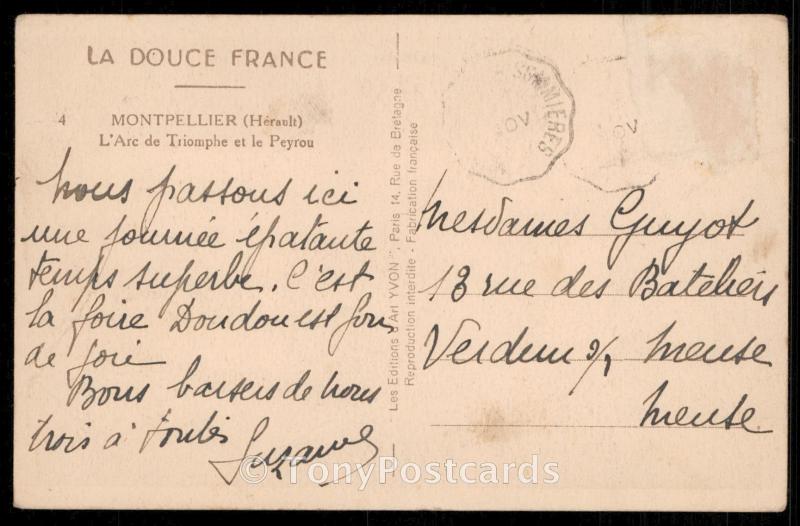 LA DOUCE FRANCE
4 MONTPELLIER (Hérault)
L'Arc de Triomphe et le Peyrou
Nous passons ici
une journée épatante
temps superbe. C'est
la foire Doudou est fou
de joie
Bons baisers de nous
trois à toutes
Suzanne
Les Editions d'Art "YVON", Paris 14, Rue de Bretagne
Reproduction interdite - Fabrication française
SOMMIERES
NOV
OV
Mesdames Guyot
18 rue des Bateliers
Verdun s/ Meuse
Meuse
© TonyPostcards